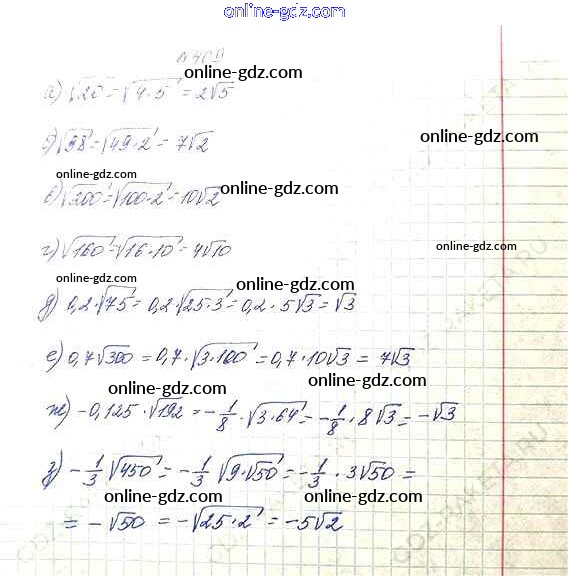 online-gdz.com
online-gdz.com
а) √20 = √4·5 = 2√5
online-gdz.com
б) √98 = √49·2 = 7√2
online-gdz.com
online-gdz.com
в) √200 = √100·2 = 10√2
online-gdz.com
г) √160 = √16·10 = 4√10
online-gdz.com
online-gdz.com
д) 0,2·√75 = 0,2·√25·3 = 0,2·5√3 = √3
online-gdz.com
е) 0,7√300 = 0,7·√3·100 = 0,7·10√3 = 7√3
online-gdz.com
online-gdz.com
ж) -0,125·√192 = -1/8·√3·64 = -1/8·8√3 = -√3
online-gdz.com
з) -1/3√450 = -1/3√9·√50 = -1/3·3√50 =
online-gdz.com
online-gdz.com
= -√50 = -√25·2 = -5√2